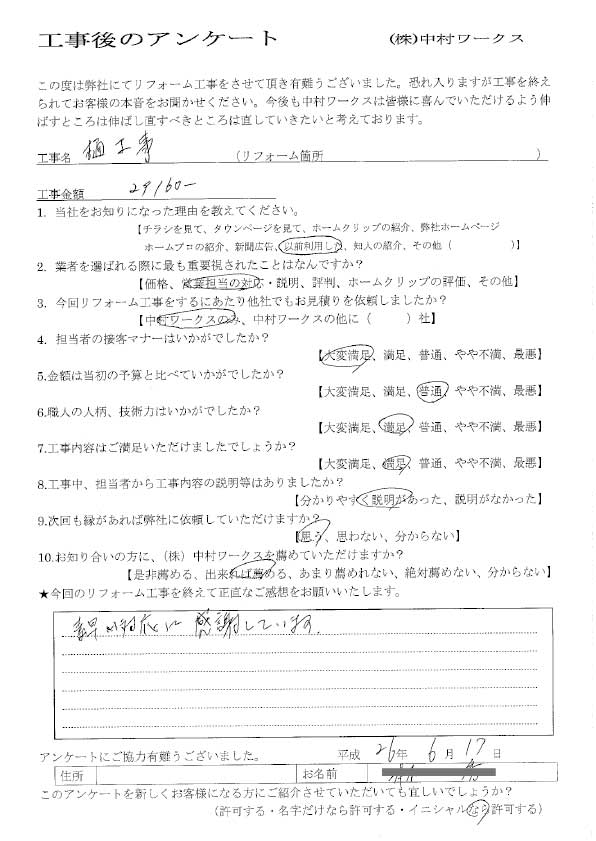 工事後のアンケート (株)中村ワークス
この度は弊社にてリフォーム工事をさせて頂き有難うございました。恐れ入りますが工事を終え
られてお客様の本音をお聞かせください。今後も中村ワークスは皆様に喜んでいただけるよう伸
ばすところは伸ばし直すべきところは直していきたいと考えております。
工事名 樋工事 (リフォーム箇所 )
工事金額 29160−
1. 当社をお知りになった理由を教えてください。
【チラシを見て、タウンページを見て、ホームクリップの紹介、弊社ホームページ
ホームプロの紹介、新聞広告、以前利用した、知人の紹介、その他（ ）】
2. 業者を選ばれる際に最も重要視されたことはなんですか？
【価格、営業担当の対応・説明、評判、ホームクリップの評価、その他】
3. 今回リフォーム工事をするにあたり他社でもお見積りを依頼しましたか？
【中村ワークスのみ、中村ワークスの他に（ ）社】
4. 担当者の接客マナーはいかがでしたか？
【大変満足、満足、普通、やや不満、最悪】
5.金額は当初の予算と比べていかがでしたか？
【大変満足、満足、普通、やや不満、最悪】
6.職人の人柄、技術力はいかがでしたか？
【大変満足、満足、普通、やや不満、最悪】
7.工事内容はご満足いただけましたでしょうか？
【大変満足、満足、普通、やや不満、最悪】
8.工事中、担当者から工事内容の説明等はありましたか？
【分かりやすく説明があった、説明がなかった】
9.次回も縁があれば弊社に依頼していただけますか？
【思う、思わない、分からない】
10.お知り合いの方に、（株）中村ワークスを薦めていただけますか？
【是非薦める、出来れば薦める、あまり薦めれない、絶対薦めない、分からない】
★今回のリフォーム工事を終えて正直なご感想をお願いいたします。
早い対応に感謝しています。
アンケートにご協力有難うございました。 平成 26年 6月 17日
住所 お名前
このアンケートを新しくお客様になる方にご紹介させていただいても宜しいでしょうか？
（許可する・名字だけなら許可する・イニシャルなら許可する）